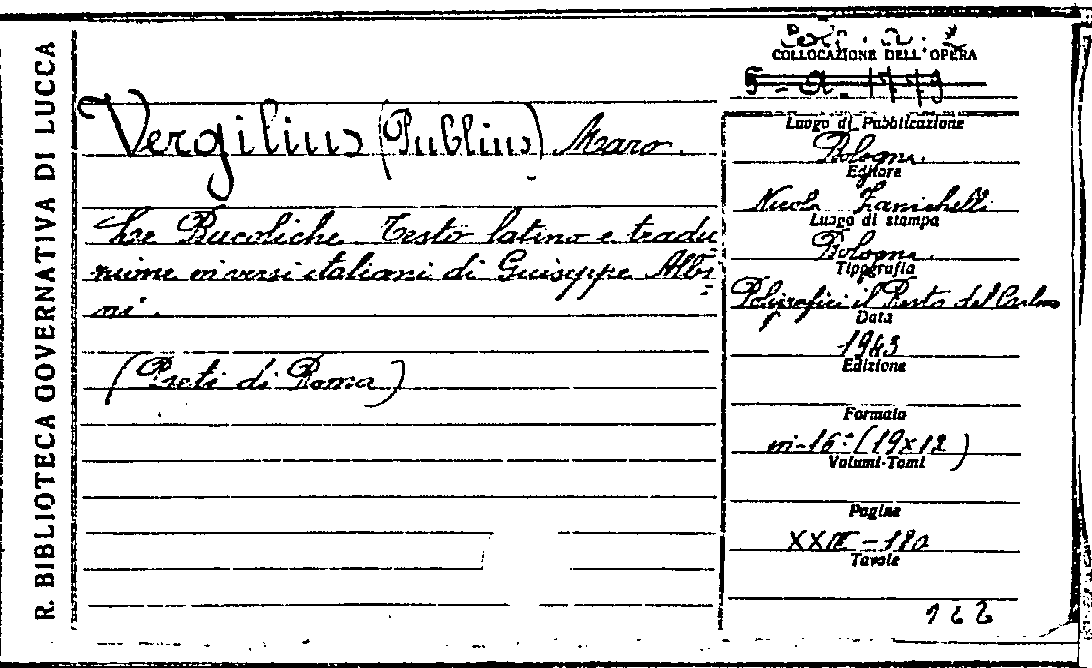 R. BIBLIOTECA GOVERNATIVA DI LUCCA
COLLOCAZIONE DELL'OPERA
Vergilius (Publius) Maro.
Le Bucoliche. Testo latino e tradu
zione in versi italiani di Giuseppe Albi
ni.
(Poeti di Roma)
Luogo di Pubblicazione
Bologna.
Editore
Nicola Zanichelli
Luogo di stampa
Bologna.
Tipografia
Poligrafici il Resto del Carlino
Data
1943
Edizione
Formato
in-16° (19x12)
Volumi-Tomi
Pagine
180
Tavole